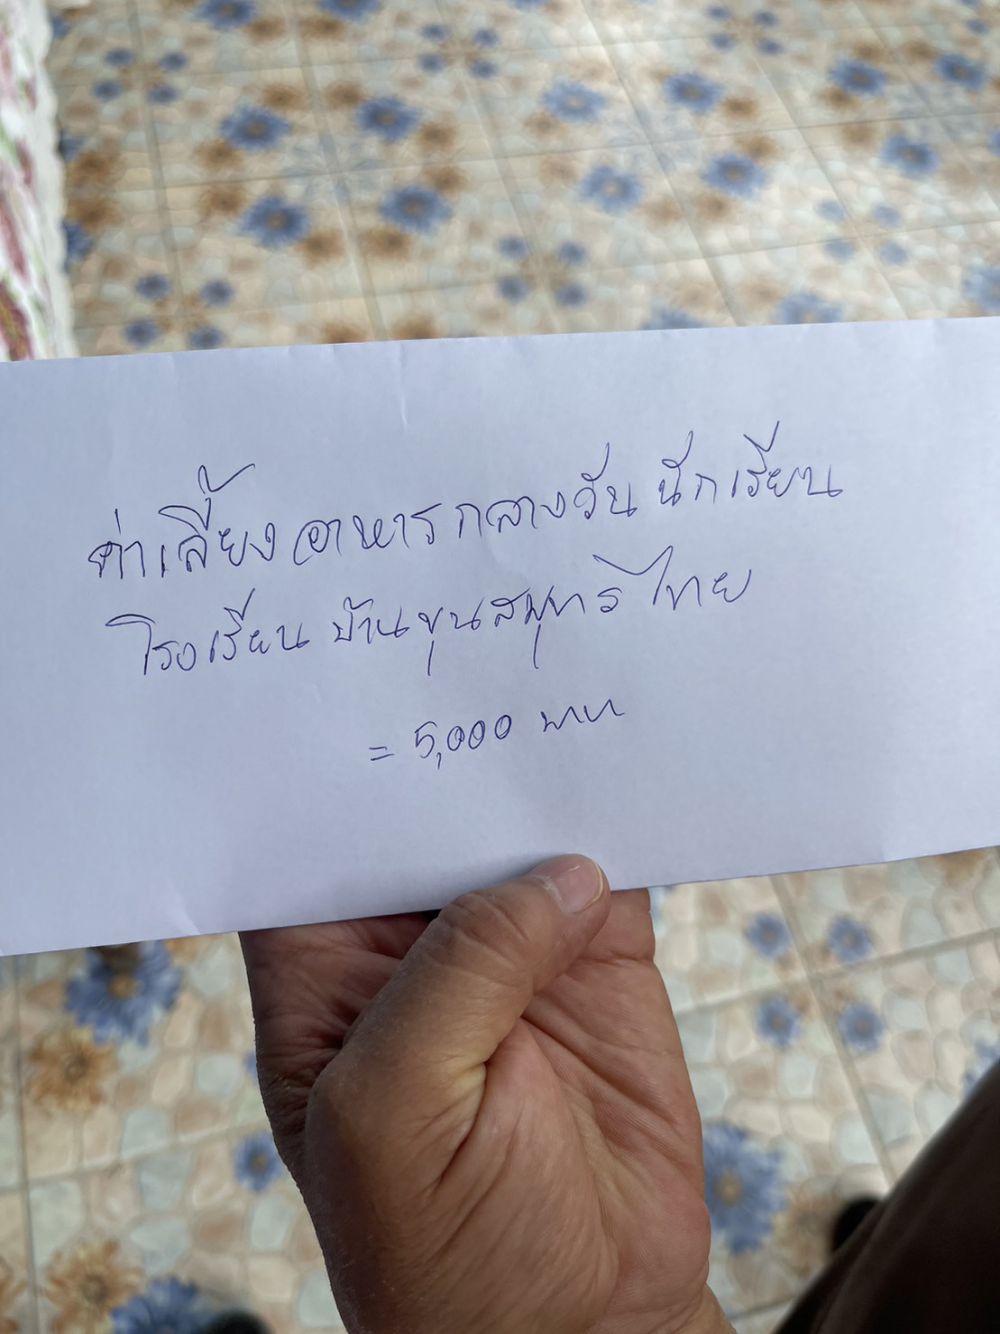 ค่าเลี้ยงอาหารกลางวันนักเรียน
โรงเรียนบ้านขุนสมุทรไทย
= 5,000 บาท